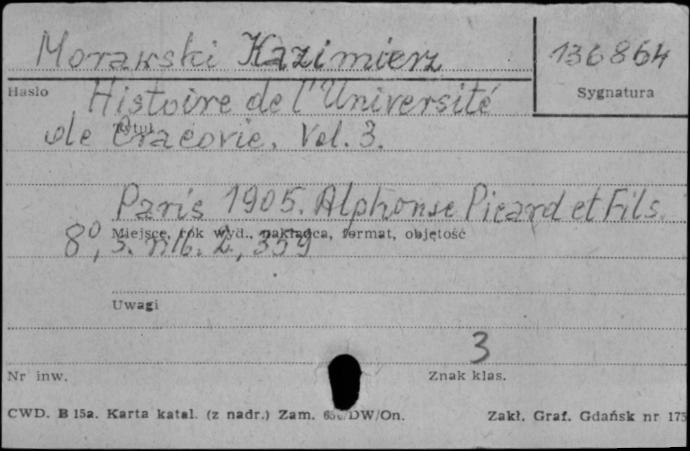 Morawski Kazimierz
136864
Hasło
Sygnatura
Histoire de l'Université
de Cracovie. Vol. 3.
Tytuł
Paris 1905. Alphonse Picard et Fils.
Miejsce, rok wyd., nakładca, format, objętość
8°, s. nlb. 2, 359
Uwagi
3
Nr inw.
Znak klas.
CWD. B 15a. Karta katal. (z nadr.) Zam. DW/On.
Zakł. Graf. Gdańsk nr 175